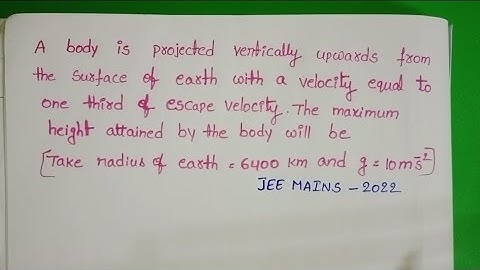 A body is projected vertically upwards from
the surface of earth with a velocity equal to
one third of escape velocity. The maximum
height attained by the body will be
[Take radius of earth = 6400 km and g = 10 ms⁻²]
JEE MAINS - 2022